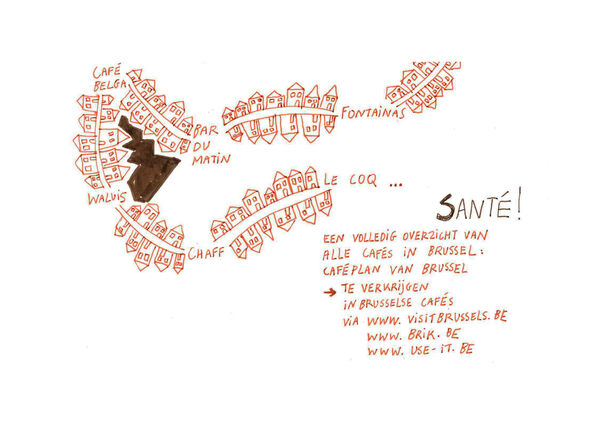 CAFÉ
BELGA
BAR
DU
MATIN
FONTAINAS
WALVIS
CHAFF
LE COQ ...
SANTÉ!
EEN VOLLEDIG OVERZICHT VAN
ALLE CAFÉS IN BRUSSEL:
CAFÉPLAN VAN BRUSSEL
→ TE VERKRIJGEN
IN BRUSSELSE CAFÉS
VIA WWW.VISITBRUSSELS.BE
WWW.BRIK.BE
WWW.USE-IT.BE